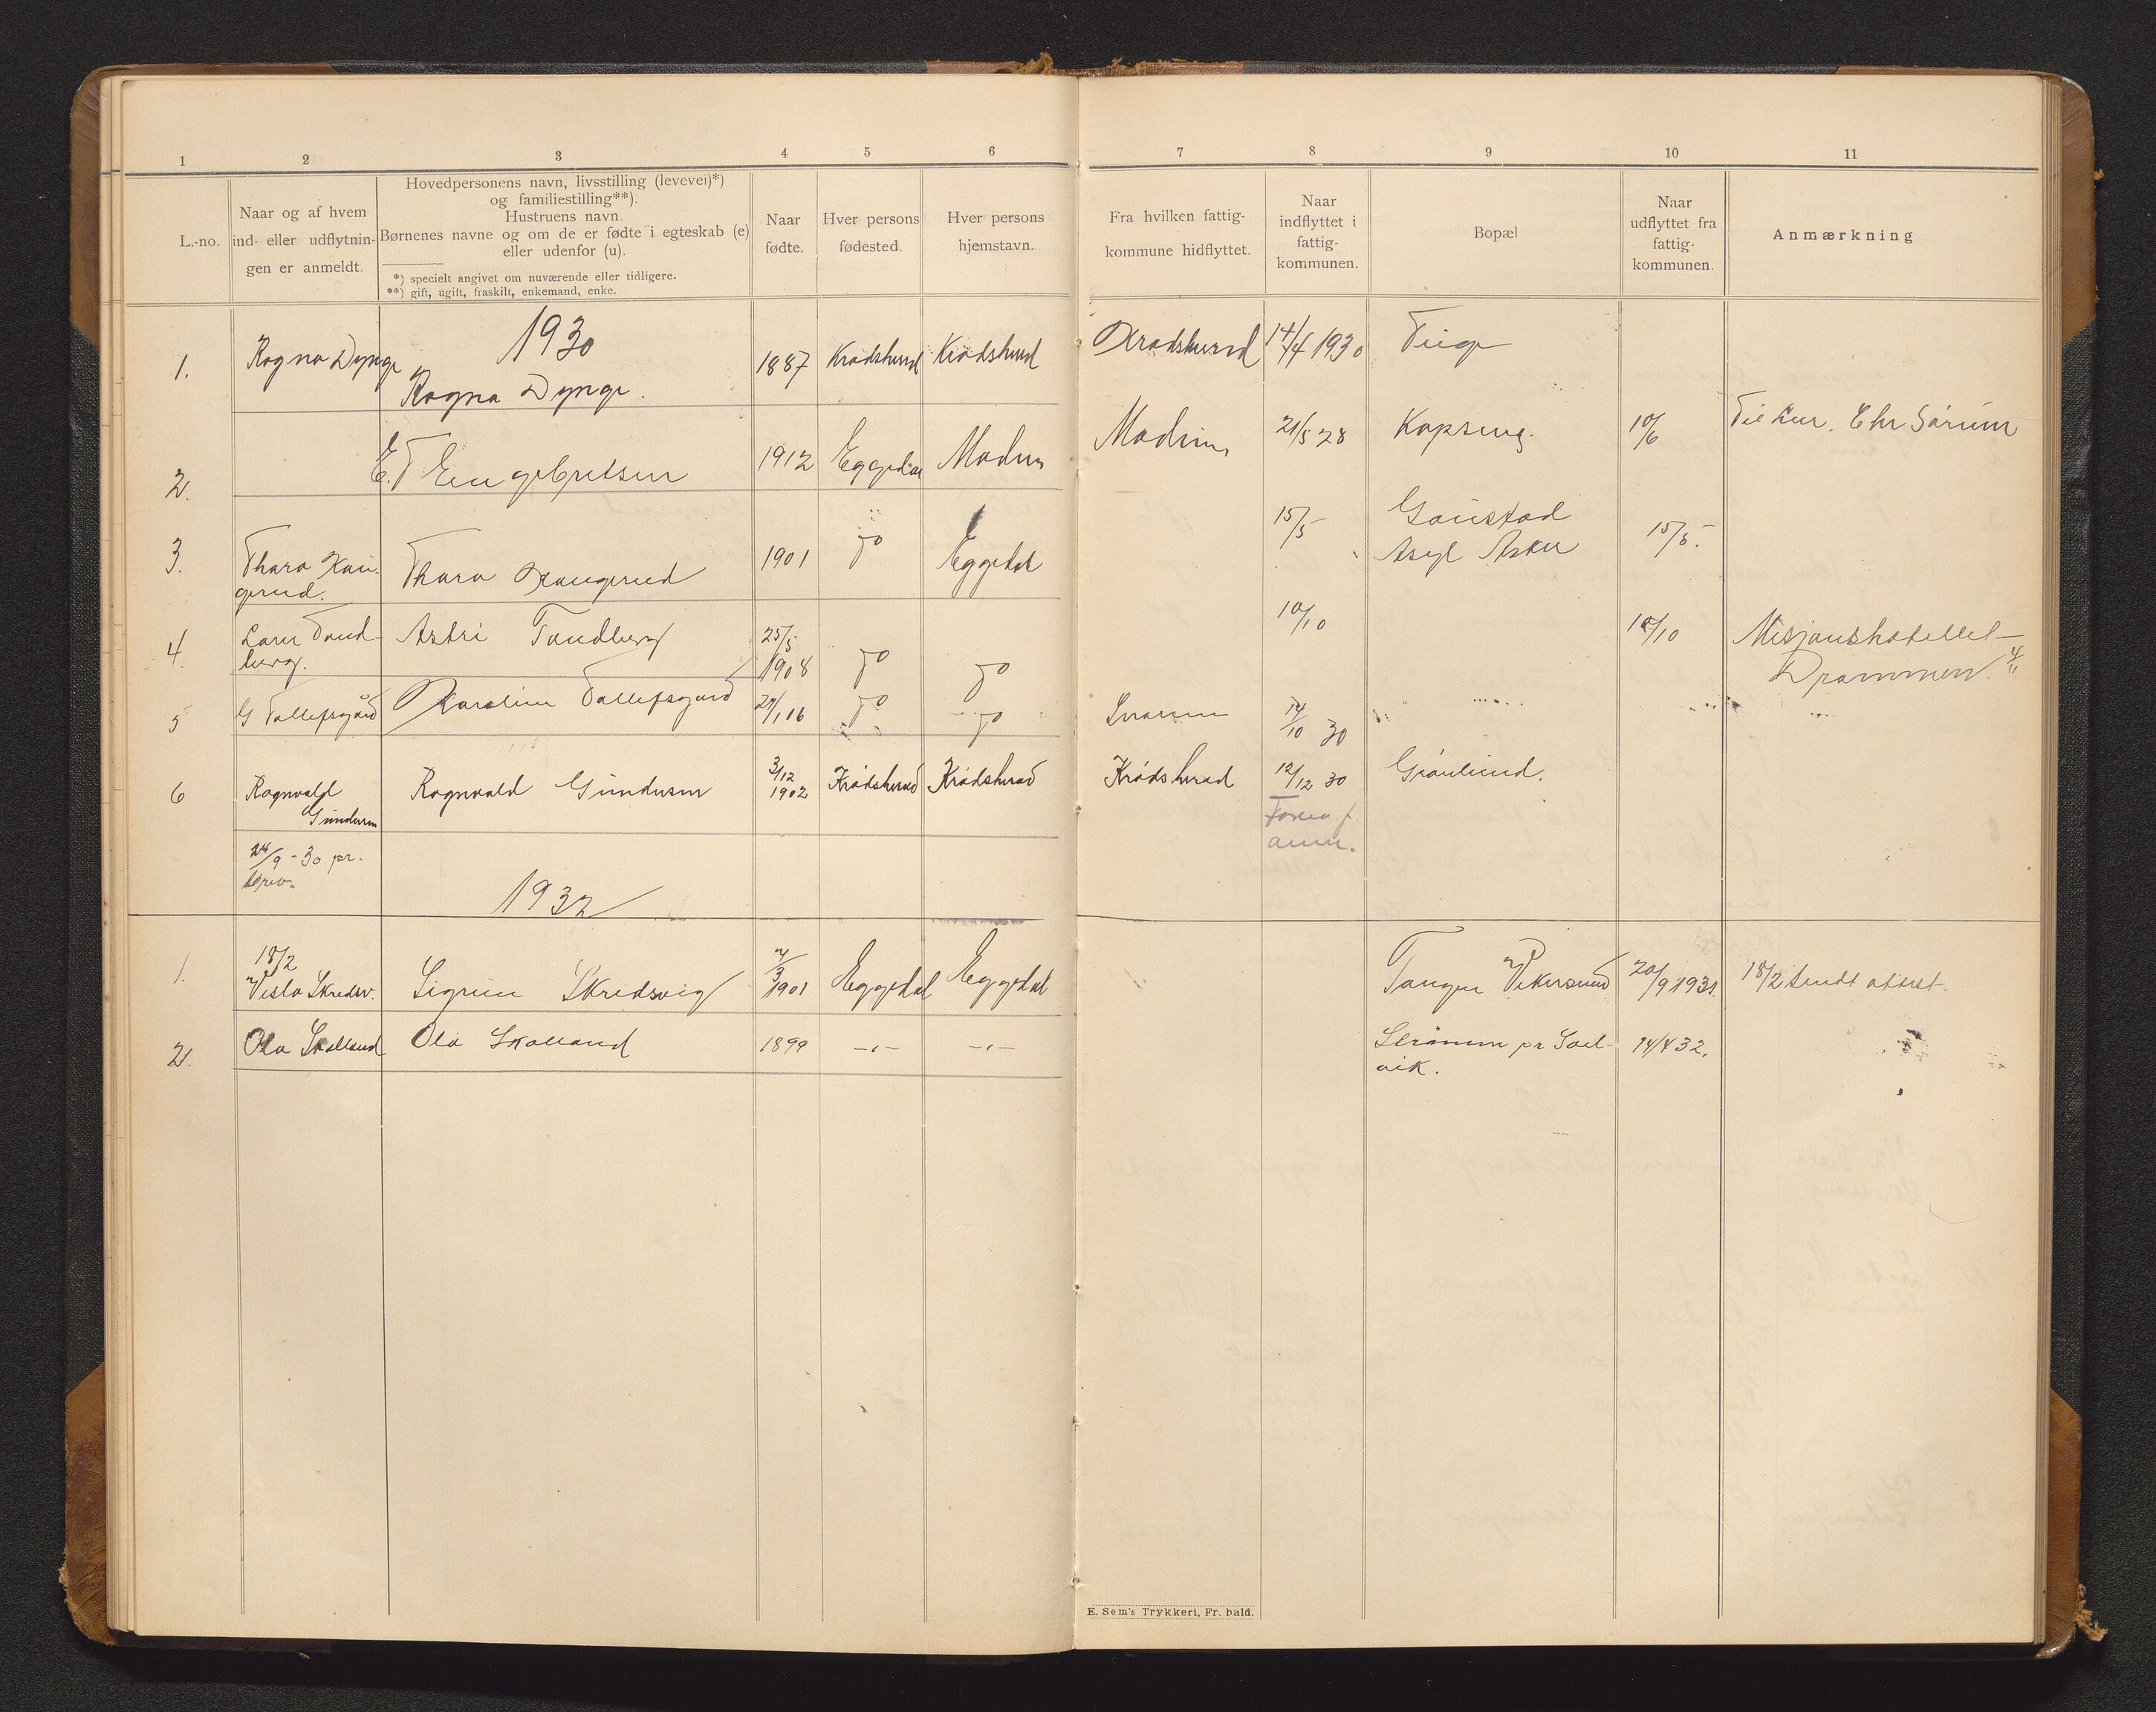 1 2 3 4 5 6 7 8 9 10 11
L.-no.
Naar og af hvem
ind- eller udflytnin-
gen er anmeldt.
Hovedpersonens navn, livsstilling (levevei)*)
og familiestilling**).
Hustruens navn.
Børnenes navne og om de er fødte i egteskab (e)
eller udenfor (u).
*) specielt angivet om nuværende eller tidligere.
**) gift, ugift, fraskilt, enkemand, enke.
Naar
fødte.
Hver persons
fødested.
Hver persons
hjemstavn.
Fra hvilken fattig-
kommune hidflyttet.
Naar
indflyttet i
fattig-
kommunen.
Bopæl
Naar
udflyttet fra
fattig-
kommunen.
Anmærkning
1930
1. Ragna Dynge Ragna Dynge. 1887 Krødsherad Krødsherad Krødsherad 14/4 1930 Teige
2. E. T Engebretsen 1912 Eggedal Modum Modum 21/5 28 Kopseng. 10/6 Chr Sørum
3. Thara Kau-
gerud. Thara Kaugerud 1901 do Eggedal 15/5 Gaustad
Asyl Asker 15/5.
4. Lars Tand-
berg. Astri Tandberg 25/5
1908 do do 10/10 10/10 Misjonshotellet
Drammen. 4/11
5 G Tollefsgård Karoline Tollefsgård 29/1 06 do do Snarum 14/10 30
6 Ragnvald
Gundersen Ragnvald Gundersen 3/12
1902 Krødsherad Krødsherad Krødsherad 12/12 30 Grønlund.
anm.
24/9 - 30 pr.
brev.
1932
1. 18/2
Vesla Skredsv. Sigrun Skredsvig 7/3
1901 Eggedal Eggedal Tangen Vikersund 20/9 1931. 18/2 sendt attest.
2. Ola Skalland Ola Skalland 1899 -"- -"- pr Sol-
vik. 14/4 32.
E. Sem's Trykkeri, Fr. hald.